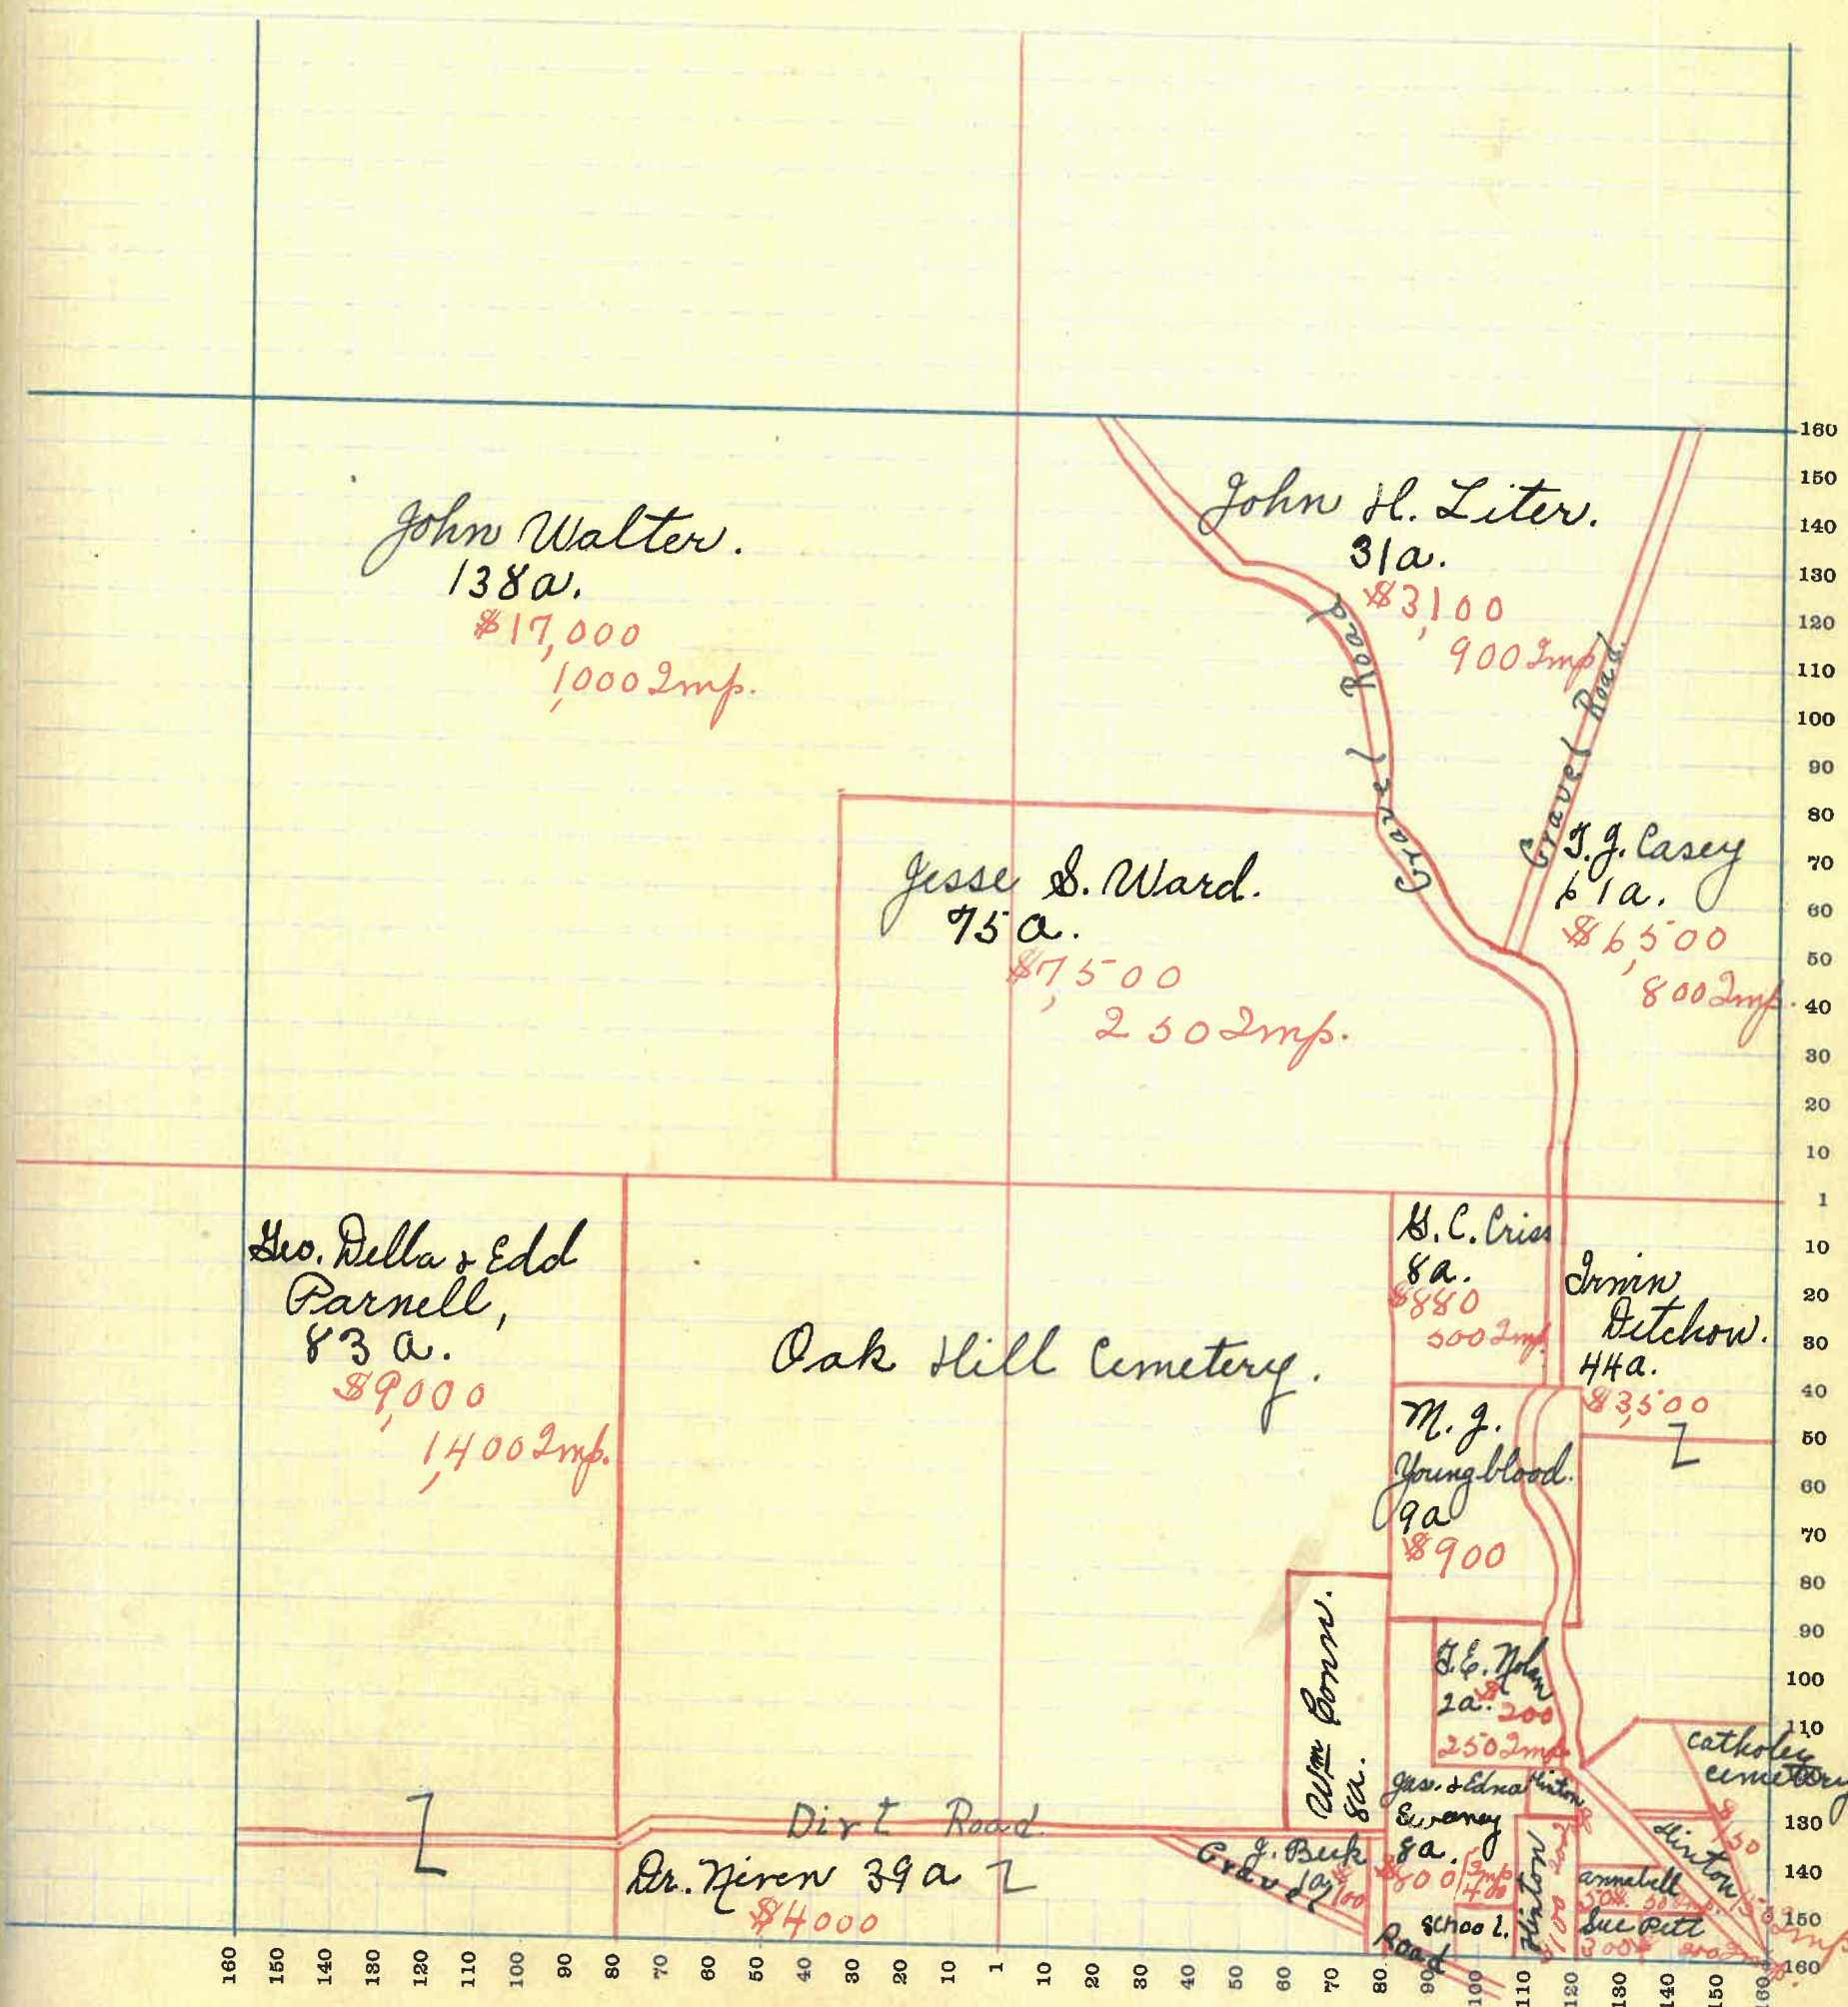 John Walter.
138a.
$17,000
1,000 Imp.
John H. Liter.
31a.
$3,100
900 Imp.
Gravel Road
Gravel Road.
Jesse S. Ward.
75a.
$7,500
250 Imp.
T. J. Casey
61a.
$6,500
800 Imp.
Geo. Della & Edd
Parnell,
83 a.
$9,000
1,400 Imp.
Oak Hill Cemetery.
G. C. Criss
8a.
$880
500 Imp.
44a.
$3,500
M. J.
Youngblood.
9a
$900
Wm Conn.
8a.
T. E. Nolan
2a. $200
250 Imp.
Catholic
cemetery
Jas. & Edna
8a.
$800 Imp
400
Hinton
Hinton
$150
150 Imp
Hinton
$100
annabell
50$. 50 Imp.
Sue Pett
300$
School.
Dirt Road.
Dr. Niven 39a
$4000
J. Beck
1a
$100
Gravel
Road
160
150
140
130
120
110
100
90
80
70
60
50
40
30
20
10
1
10
20
30
40
50
60
70
80
90
100
110
130
140
150
160
160 150 140 130 120 110 100 90 80 70 60 50 40 30 20 10 1 10 20 30 40 50 60 70 80 90 100 110 120 130 140 150 160